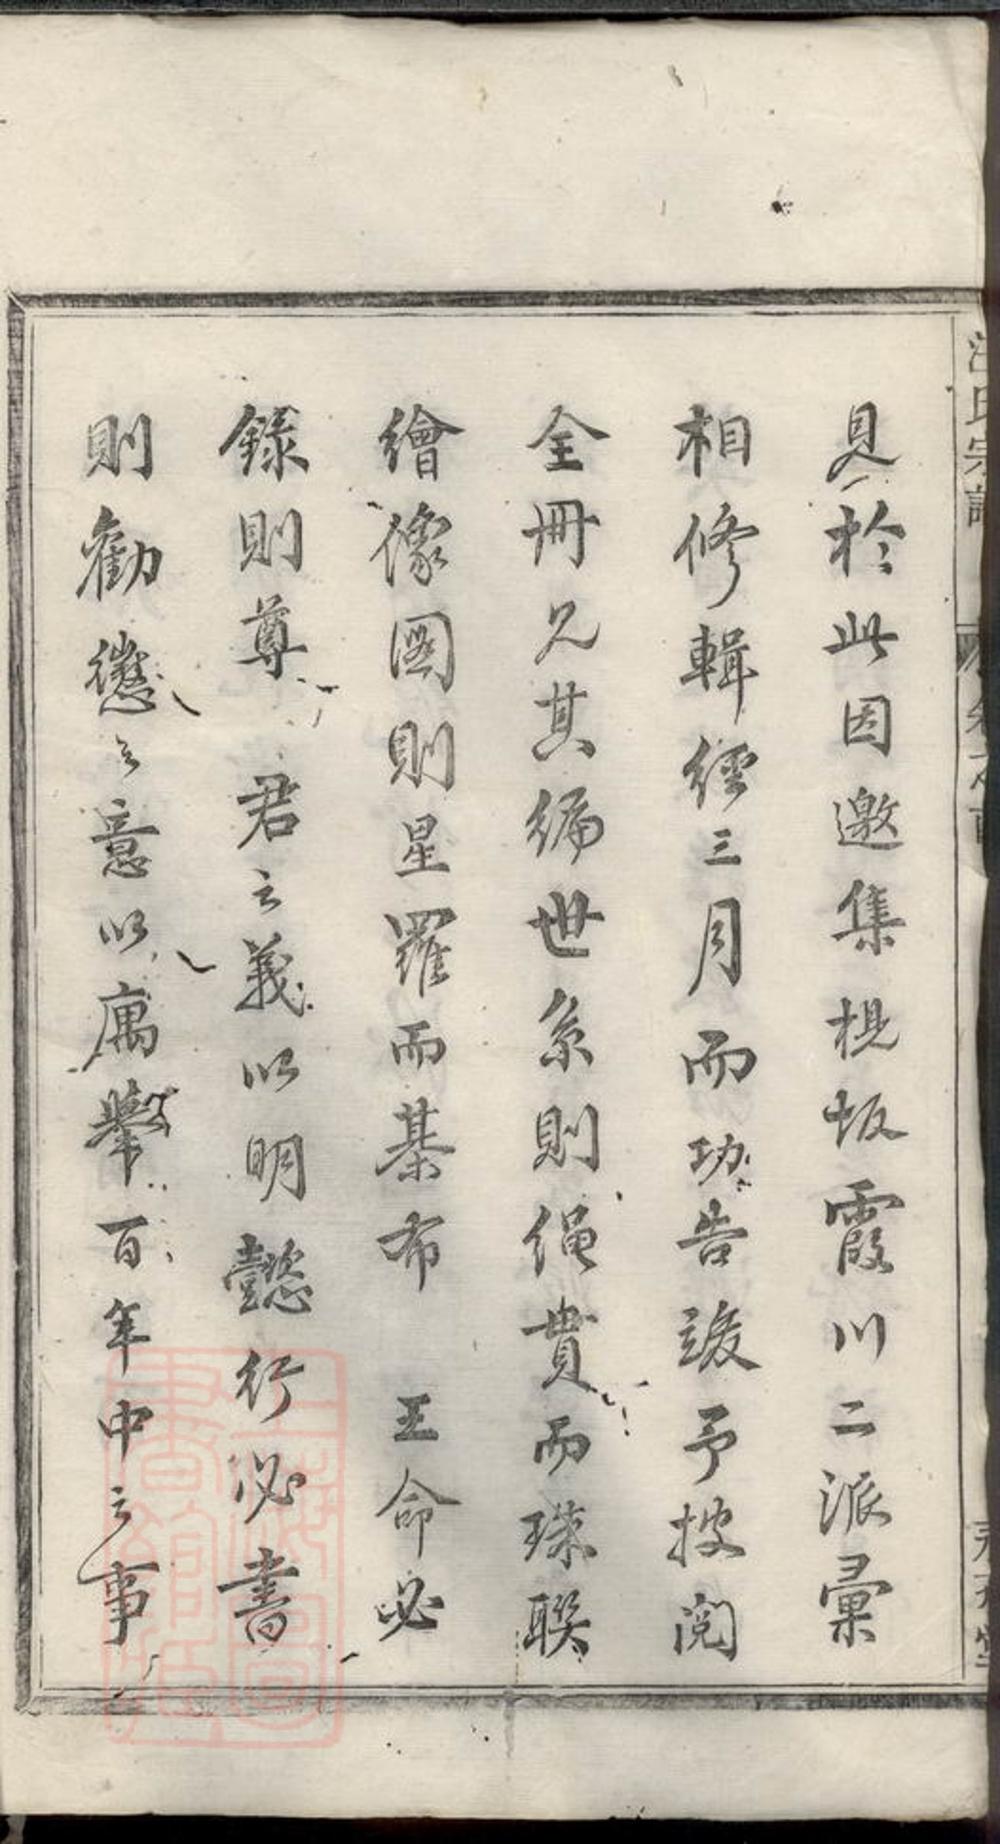 見於此因邀集梘坂霞川二派彙
相修輯經三月而功告竣予披閱
全冊見其編世系則绳貫而珠聯
繪像圖則星羅而棊布 王命必
錄則尊 君之義以明懿行必書
則勸懲之意以寓舉百年中之事